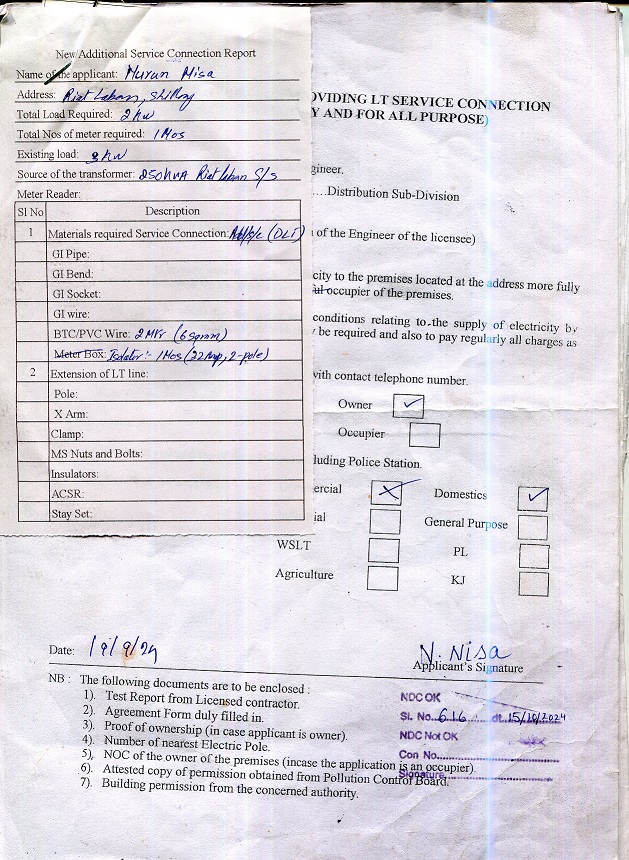 New Additional Service Connection Report
Name of the applicant: Nurun Nisa
Address: Riat Laban, Shillong
Total Load Required: 2 kW
Total Nos of meter required: 1 Nos
Existing load: 2 kW
Source of the transformer: 250 kVA Riat Laban S/s
Meter Reader:
Sl No Description
1 Materials required Service Connection: (DLT)
GI Pipe:
GI Bend:
GI Socket:
GI wire:
BTC/PVC Wire: 2 Mtr (6 sqmm)
Meter Box: Isolator:- 1 Nos (32 Amp, 2-pole)
2 Extension of LT line:
Pole:
X Arm:
Clamp:
MS Nuts and Bolts:
Insulators:
ACSR:
Stay Set:
OVIDING LT SERVICE CONNECTION
Y AND FOR ALL PURPOSE)
gineer.
....Distribution Sub-Division
of the Engineer of the licensee)
city to the premises located at the address more fully
ful occupier of the premises.
conditions relating to the supply of electricity by
be required and also to pay regularly all charges as
with contact telephone number.
Owner ✓
Occupier
luding Police Station.
ercial X Domestics ✓
ial General Purpose
WSLT PL
Agriculture KJ
Date: 19/9/24 N. Nisa
Applicant's Signature
NB : The following documents are to be enclosed :
1). Test Report from Licensed contractor.
2). Agreement Form duly filled in.
3). Proof of ownership (in case applicant is owner).
4). Number of nearest Electric Pole.
5). NOC of the owner of the premises (incase the application is an occupier).
6). Attested copy of permission obtained from Pollution Control Board.
7). Building permission from the concerned authority.
NDC OK
Sl. No. 616 dt. 15/10/2024
NDC Not OK
Con No.
Signature